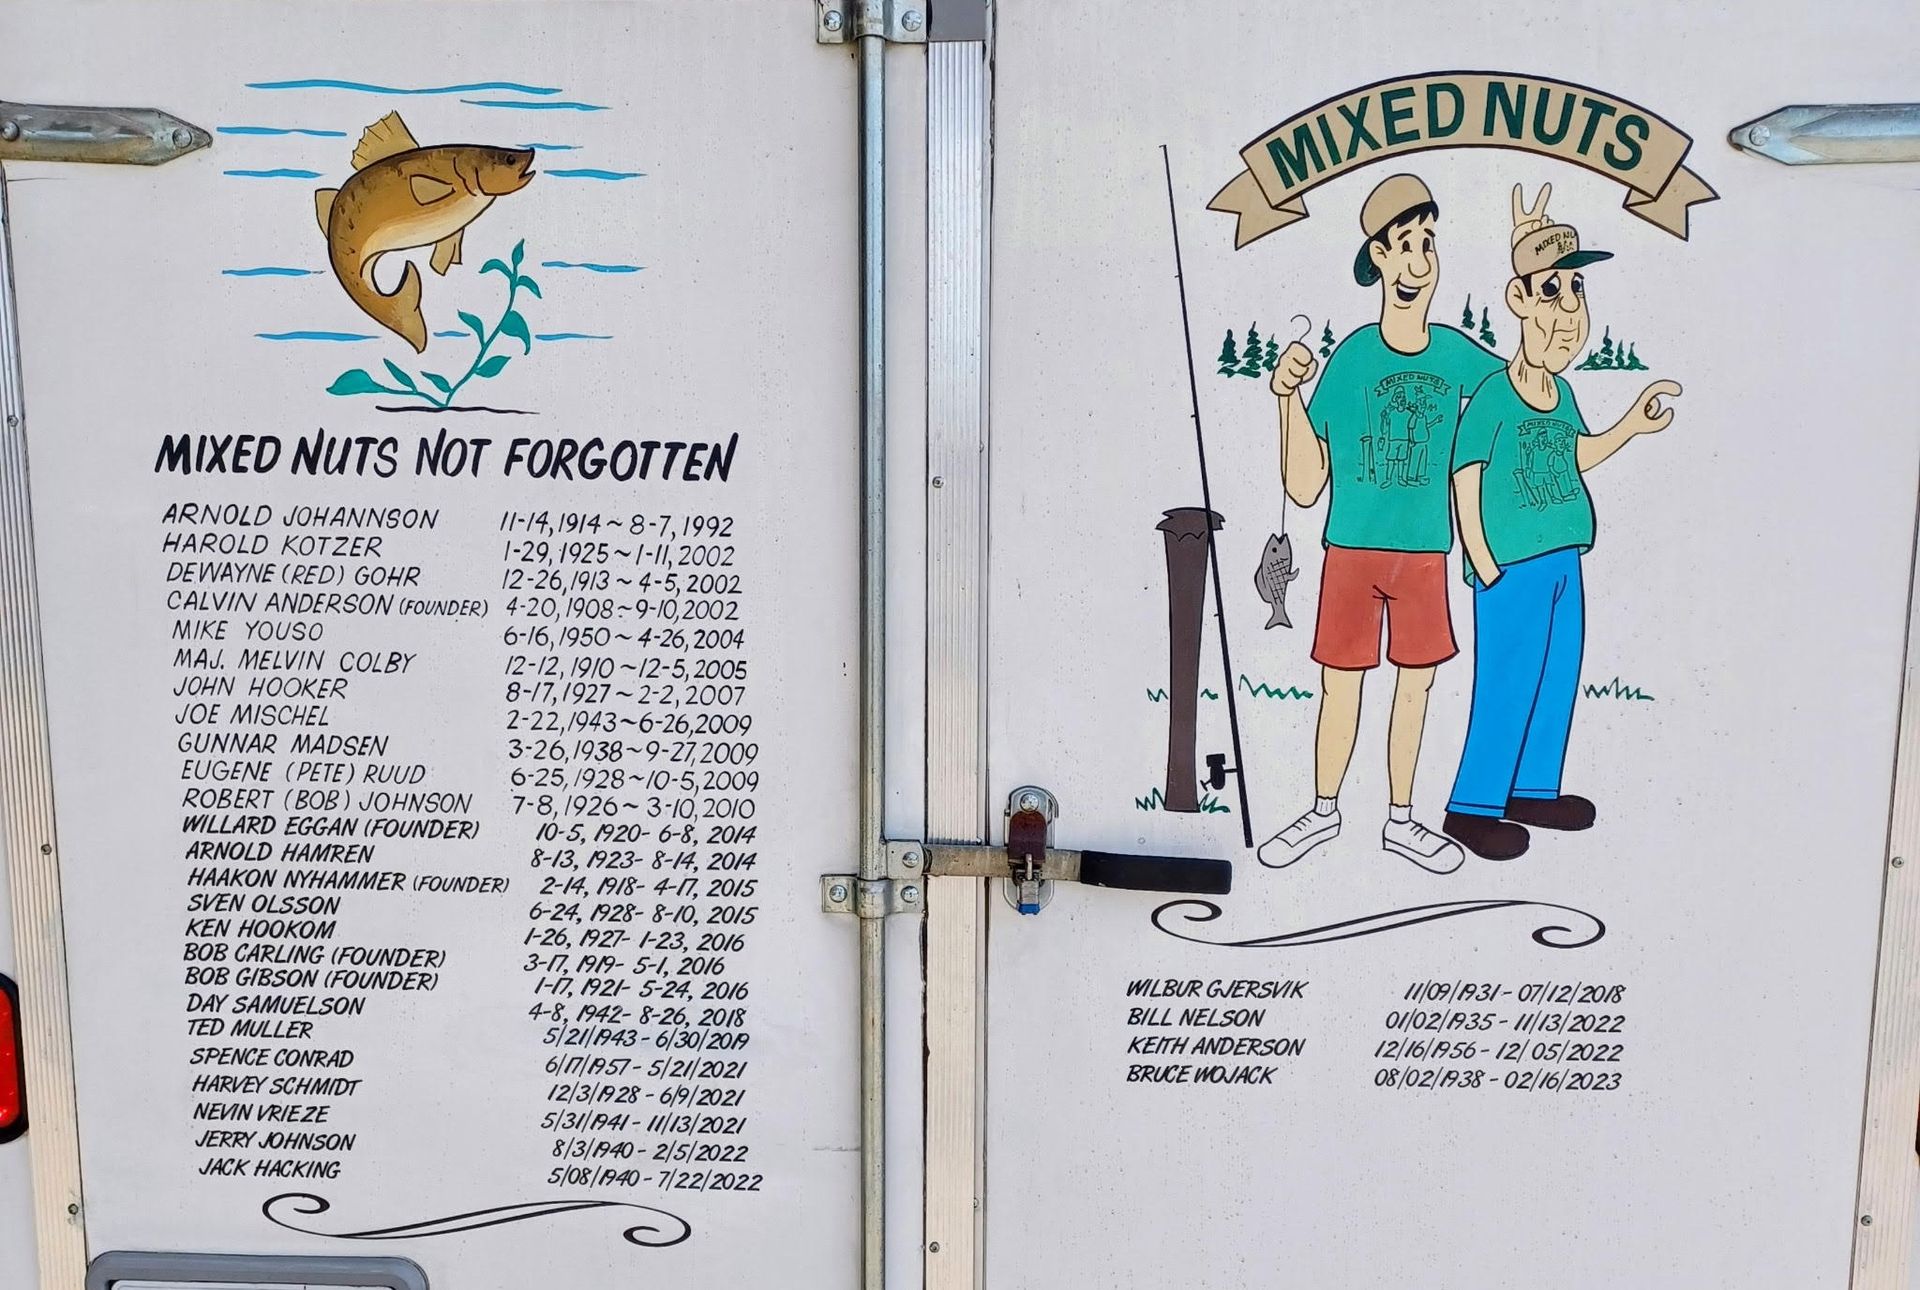 MIXED NUTS NOT FORGOTTEN
ARNOLD JOHANNSON 11-14, 1914 ~ 8-7, 1992
HAROLD KOTZER 1-29, 1925 ~ 1-11, 2002
DEWAYNE (RED) GOHR 12-26, 1913 ~ 4-5, 2002
CALVIN ANDERSON (FOUNDER) 4-20, 1908 ~ 9-10, 2002
MIKE YOUSO 6-16, 1950 ~ 4-26, 2004
MAJ. MELVIN COLBY 12-12, 1910 ~ 12-5, 2005
JOHN HOOKER 8-17, 1927 ~ 2-2, 2007
JOE MISCHEL 2-22, 1943 ~ 6-26, 2009
GUNNAR MADSEN 3-26, 1938 ~ 9-27, 2009
EUGENE (PETE) RUUD 6-25, 1928 ~ 10-5, 2009
ROBERT (BOB) JOHNSON 7-8, 1926 ~ 3-10, 2010
WILLARD EGGAN (FOUNDER) 10-5, 1920- 6-8, 2014
ARNOLD HAMREN 8-13, 1923- 8-14, 2014
HAAKON NYHAMMER (FOUNDER) 2-14, 1918- 4-17, 2015
SVEN OLSSON 6-24, 1928- 8-10, 2015
KEN HOOKOM 1-26, 1927- 1-23, 2016
BOB CARLING (FOUNDER) 3-17, 1919- 5-1, 2016
BOB GIBSON (FOUNDER) 1-17, 1921- 5-24, 2016
DAY SAMUELSON 4-8, 1942- 8-26, 2018
TED MULLER 5/21/1943 - 6/30/2019
SPENCE CONRAD 6/17/1957 - 5/21/2021
HARVEY SCHMIDT 12/3/1928 - 6/9/2021
NEVIN VRIEZE 5/31/1941 - 11/13/2021
JERRY JOHNSON 8/3/1940 - 2/5/2022
JACK HACKING 5/08/1940 - 7/22/2022
MIXED NUTS
MIXED
MIXED NUTS
MIXED NUTS
WILBUR GJERSVIK 11/09/1931 - 07/12/2018
BILL NELSON 01/02/1935 - 11/13/2022
KEITH ANDERSON 12/16/1956 - 12/05/2022
BRUCE WOJACK 08/02/1938 - 02/16/2023